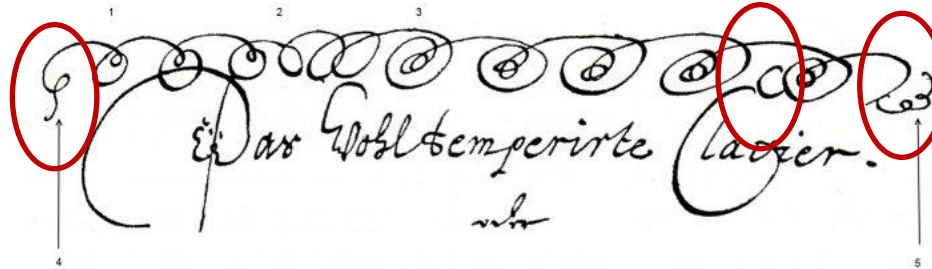 1 2 3
Das Wohltemperirte Clavier.
oder
4 5